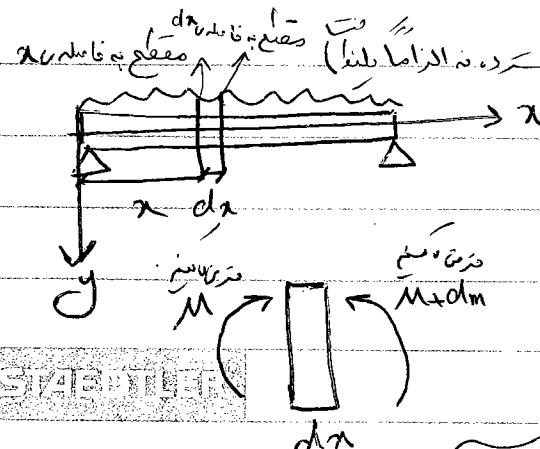 گسترده نه الزاماً یکنواخت)
مقطع به فاصله x
مقطع به فاصله dx
x
x dx
y
M
M+dm
STAEDTLER
dx